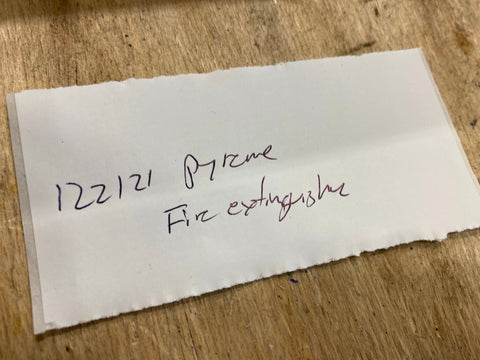 122121 Pyrene
Fire extinguisher